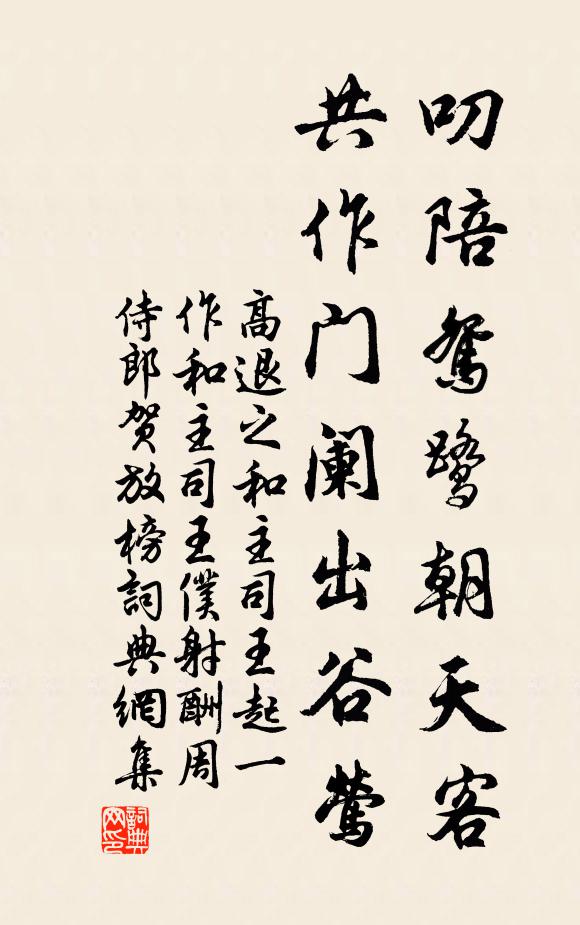 叨陪鸳鹭朝天客
共作门阑出谷莺
高退之和主司王起一
作和主司王僕射酬周
侍郎贺放榜詞典網集
詞典网印